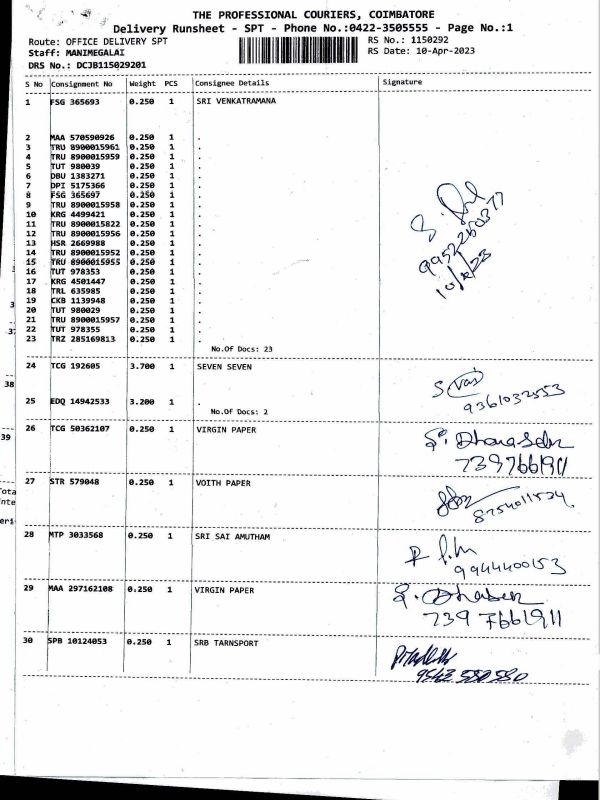 THE PROFESSIONAL COURIERS, COIMBATORE
Delivery Runsheet - SPT - Phone No.:0422-3505555 - Page No.:1
Route: OFFICE DELIVERY SPT
RS No.: 1150292
Staff: MANIMEGALAI
RS Date: 10-Apr-2023
DRS No.: DCJB115029201
S No Consignment No Weight PCS Consignee Details Signature
1 FSG 365693 0.250 1 SRI VENKATRAMANA
2 MAA 570590926 0.250 1 .
3 TRU 8900015961 0.250 1 .
4 TRU 8900015959 0.250 1 .
5 TUT 980039 0.250 1 .
6 DBU 1383271 0.250 1 .
7 DPI 5175366 0.250 1 .
8 FSG 365697 0.250 1 .
9 TRU 8900015958 0.250 1 .
10 KRG 4499421 0.250 1 .
11 TRU 8900015822 0.250 1 .
12 TRU 8900015956 0.250 1 .
13 HSR 2669988 0.250 1 .
14 TRU 8900015952 0.250 1 .
15 TRU 8900015955 0.250 1 .
16 TUT 978353 0.250 1 .
17 KRG 4501447 0.250 1 .
18 TRL 635985 0.250 1 .
19 CKB 1139948 0.250 1 .
20 TUT 980029 0.250 1 .
21 TRU 8900015957 0.250 1 .
22 TUT 978355 0.250 1 .
23 TRZ 285169813 0.250 1 .
No.Of Docs: 23
24 TCG 192605 3.700 1 SEVEN SEVEN
9361032553
25 EDQ 14942533 3.200 1 .
No.Of Docs: 2
26 TCG 50362107 0.250 1 VIRGIN PAPER
7397661911
27 STR 579048 0.250 1 VOITH PAPER
28 MTP 3033568 0.250 1 SRI SAI AMUTHAM
9944400153
29 MAA 297162108 0.250 1 VIRGIN PAPER
7397661911
30 SPB 10124053 0.250 1 SRB TARNSPORT
9543 550 550
38
39